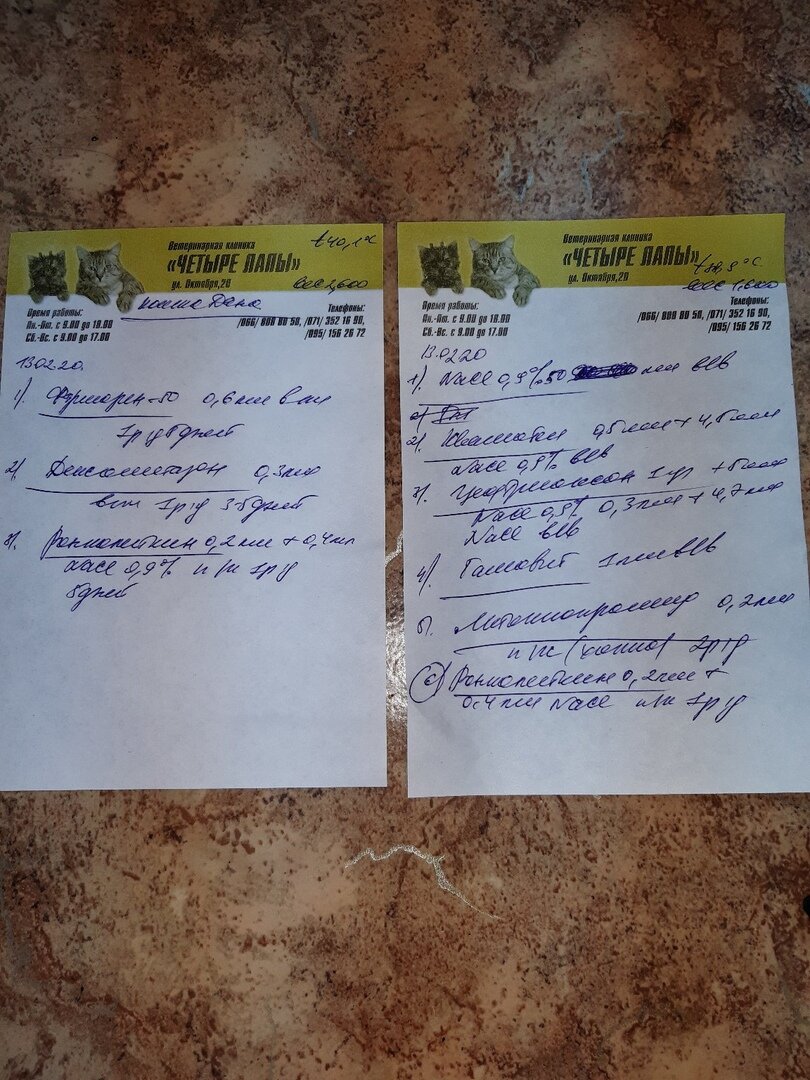 Ветеринарная клиника
t 40,1°C
«ЧЕТЫРЕ ЛАПЫ»
ул. Октября,20
вес 1,600
кошка Дана
Время работы:
Пн.-Пт. с 9.00 до 18.00
Сб.-Вс. с 9.00 до 17.00
Телефоны:
/066/ 808 80 50, /071/ 352 16 90,
/095/ 156 26 72
13.02.20.
1). -50 0,6 мл в/м
1р/д 5 дней
2) 0,3 мл
в/м 1р/д 3-5 дней
3). Ронколейкин 0,2 мл + 0,4 мл
NaCl 0,9% п/к 1р/д
5 дней
Ветеринарная клиника
«ЧЕТЫРЕ ЛАПЫ»
ул. Октября,20
вес 1,600
Время работы:
Пн.-Пт. с 9.00 до 18.00
Сб.-Вс. с 9.00 до 17.00
Телефоны:
/066/ 808 80 50, /071/ 352 16 90,
/095/ 156 26 72
13.02.20
1). NaCl 0,9% 50 мл в/в
2). Квамател 0,5 мл + 4,5 мл
NaCl 0,9% в/в
3). Цефтриаксон 1 гр + 5 мл
NaCl 0,9% 0,3 мл + 4,7 мл
NaCl в/в
4). Гамавит 1 мл в/в
5). Метоклопрамид 0,2 мл
п/к 2р/д
6) Ронколейкин 0,2 мл +
0,4 мл NaCl п/к 1р/д